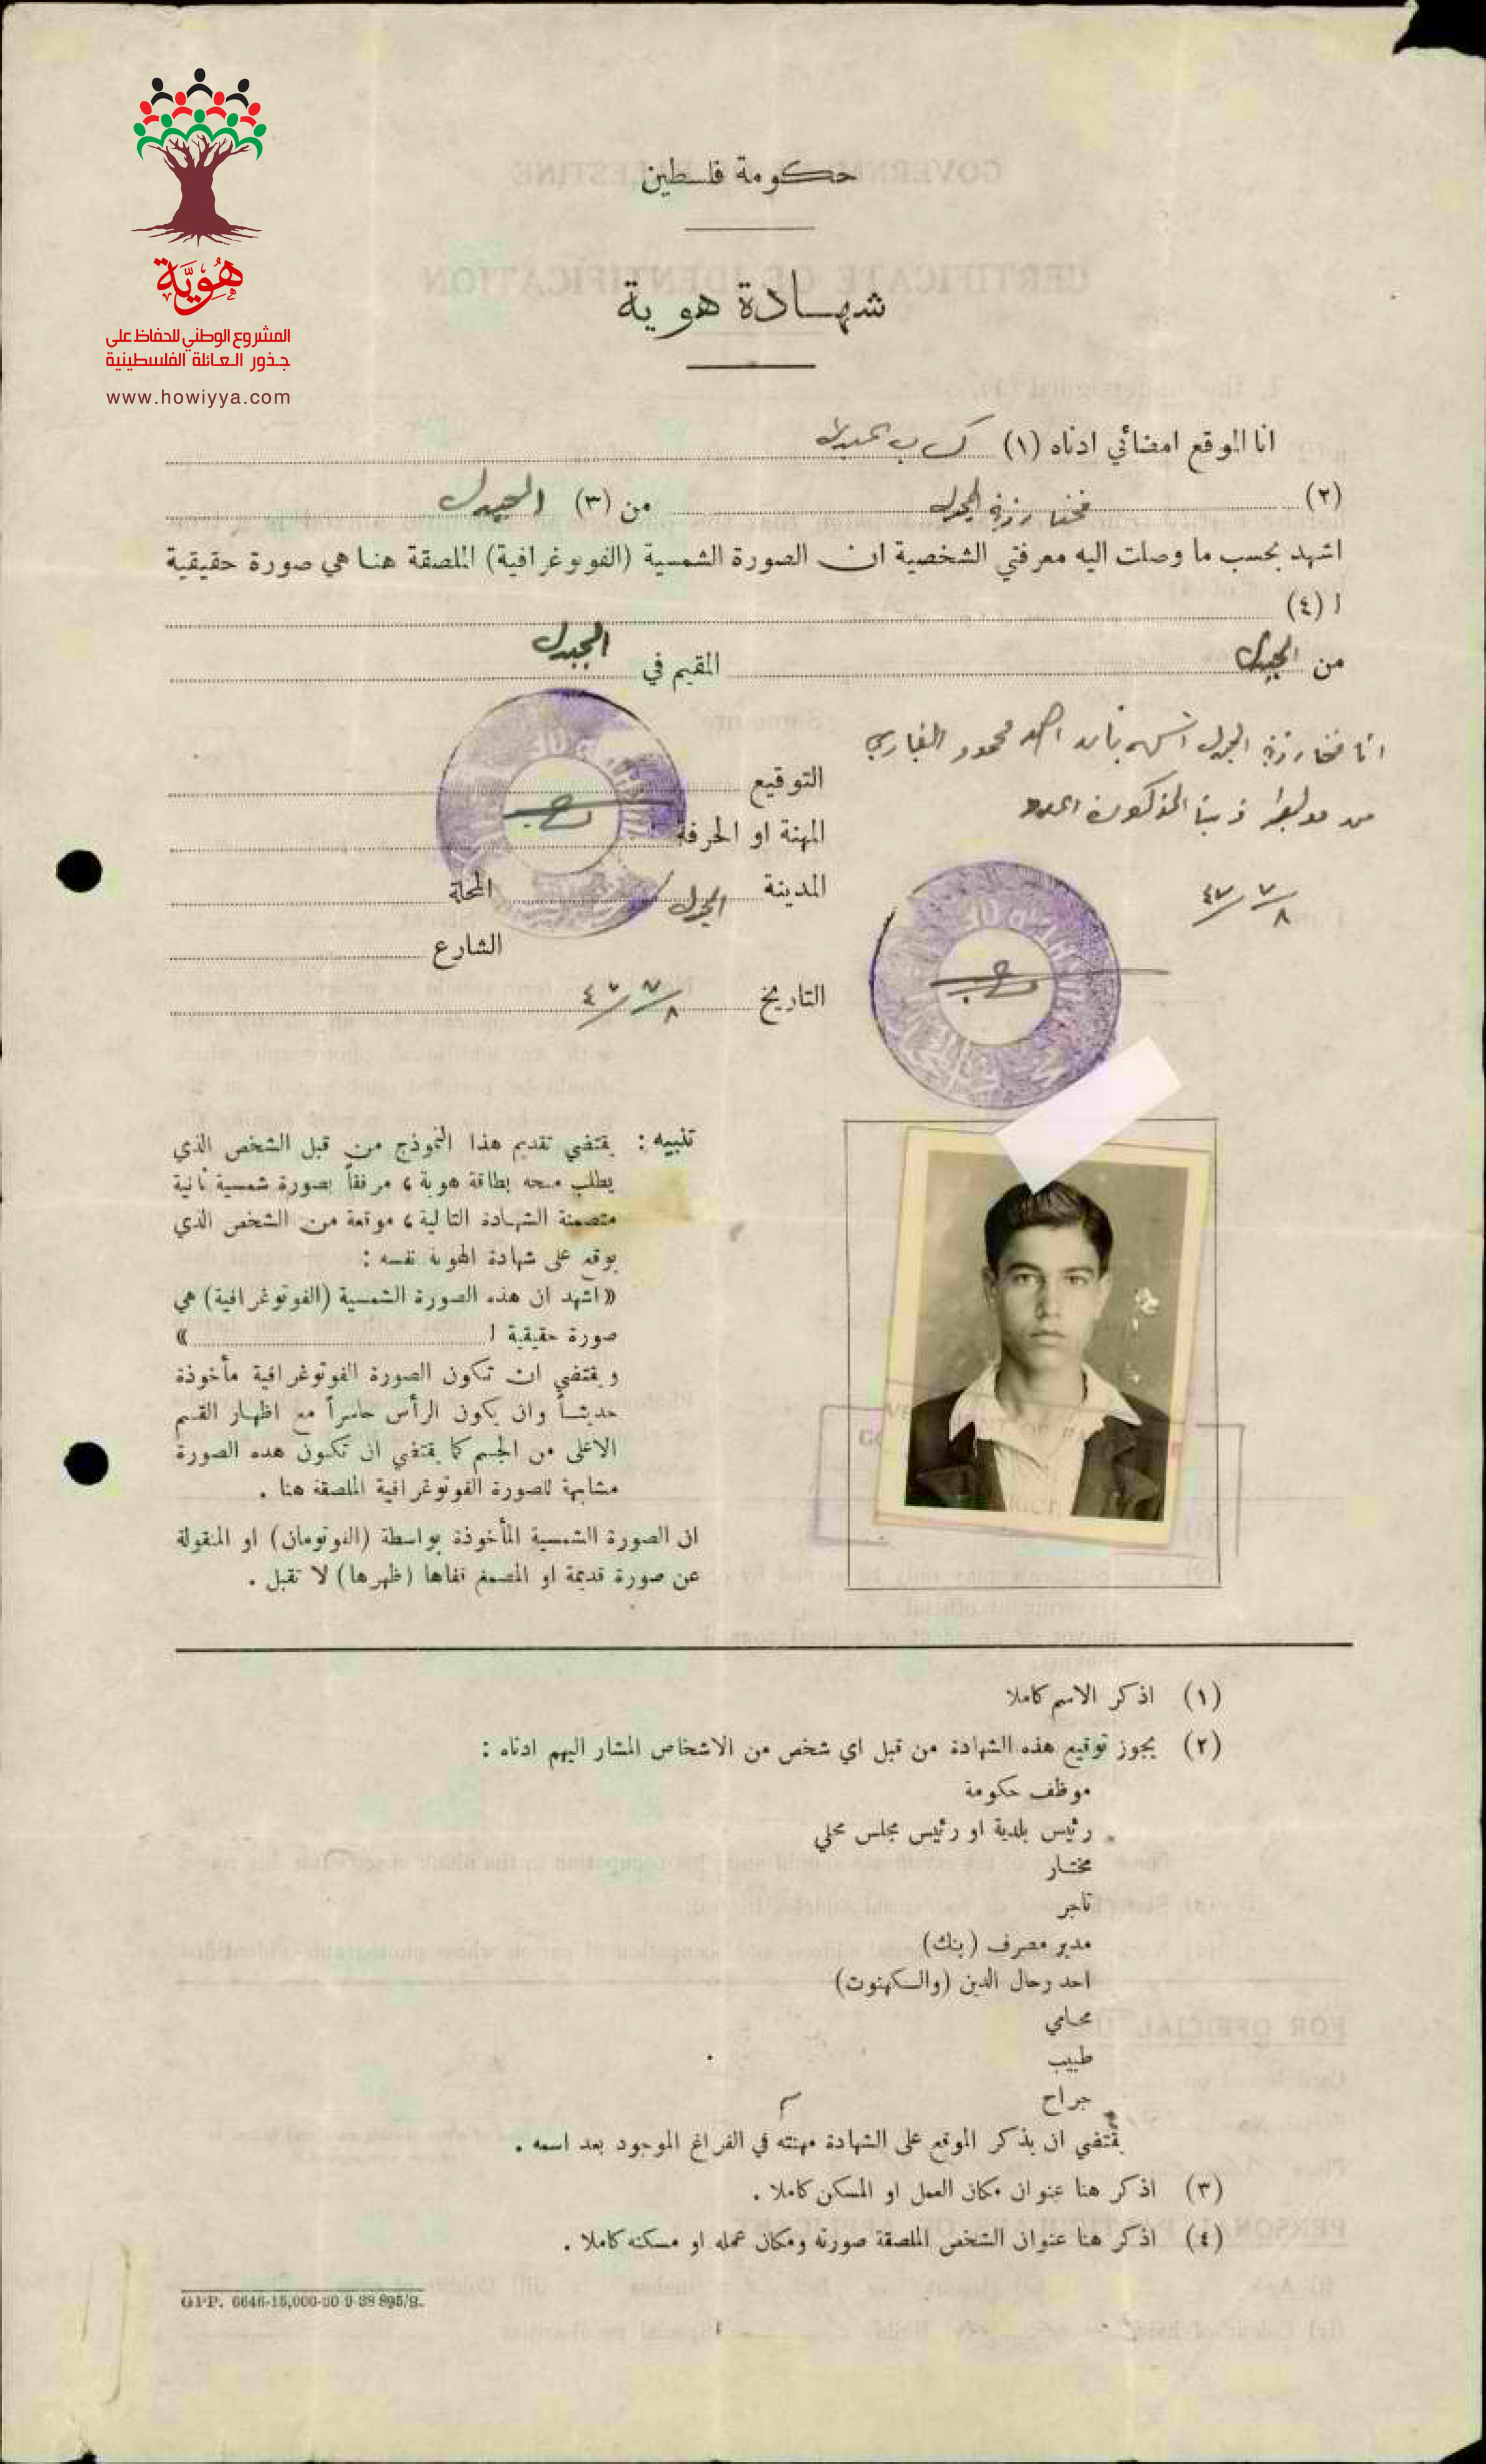 هُوِيَّة
المشروع الوطني للحفاظ على
جذور العائلة الفلسطينية
www.howiyya.com
حكومة فلسطين
شهادة هوية
انا الموقع امضائي ادناه (١)
(٢) من (٣) المجدل
اشهد بحسب ما وصلت اليه معرفتي الشخصية ان الصورة الشمسية (الفوتوغرافية) الملصقة هنا هي صورة حقيقية
ل (٤)
من المجدل المقيم في المجدل
المجدل محمود
٨/٧/٤٧
التوقيع
المهنة او الحرفة
المدينة المجدل المحلة
الشارع
التاريخ ٨/٧/٤٧
تنبيه : يقتضي تقديم هذا النموذج من قبل الشخص الذي
يطلب منحه بطاقة هوية ، مرفقاً بصورة شمسية ثانية
متضمنة الشهادة التالية ، موقعة من الشخص الذي
يوقع على شهادة الهوية نفسه :
«اشهد ان هذه الصورة الشمسية (الفوتوغرافية) هي
صورة حقيقية ل »
ويقتضي ان تكون الصورة الفوتوغرافية مأخوذة
حديثاً وان يكون الرأس حاسراً مع اظهار القسم
الاعلى من الجسم كما يقتضي ان تكون هذه الصورة
مشابهة للصورة الفوتوغرافية الملصقة هنا .
ان الصورة الشمسية المأخوذة بواسطة (الفوتومان) او المنقولة
عن صورة قديمة او المصمغ قفاها (ظهرها) لا تقبل .
(١) اذكر الاسم كاملا
(٢) يجوز توقيع هذه الشهادة من قبل اي شخص من الاشخاص المشار اليهم ادناه :
موظف حكومة
رئيس بلدية او رئيس مجلس محلي
مختار
تاجر
مدير مصرف (بنك)
احد رجال الدين (والكهنوت)
محامي
طبيب
جراح
يقتضي ان يذكر الموقع على الشهادة مهنته في الفراغ الموجود بعد اسمه .
(٣) اذكر هنا عنوان مكان العمل او المسكن كاملا .
(٤) اذكر هنا عنوان الشخص الملصقة صورته ومكان عمله او مسكنه كاملا .
GPP. 6646-15,000-30-9-38 895/S.